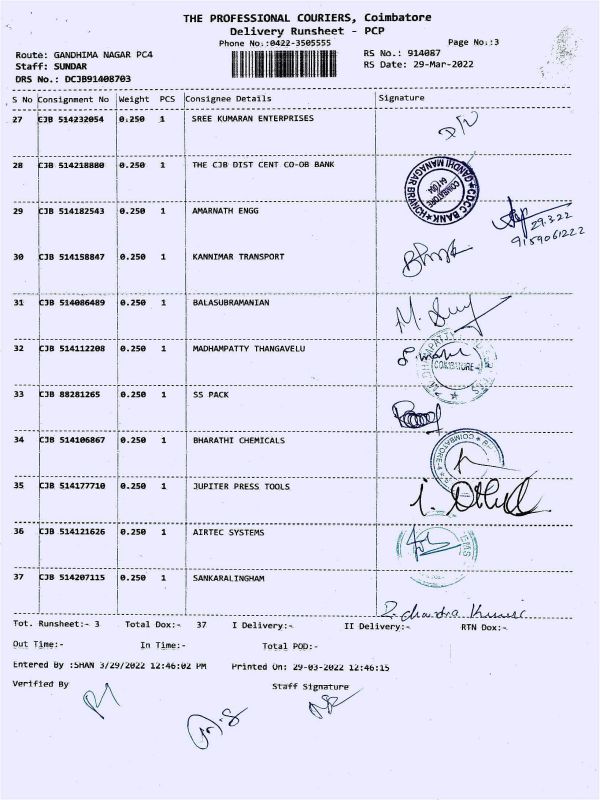 THE PROFESSIONAL COURIERS, Coimbatore
Delivery Runsheet - PCP
Phone No.:0422-3505555
Page No.:3
Route: GANDHIMA NAGAR PC4
RS No.: 914087
Staff: SUNDAR
RS Date: 29-Mar-2022
DRS No.: DCJB91408703
S No Consignment No Weight PCS Consignee Details Signature
27 CJB 514232054 0.250 1 SREE KUMARAN ENTERPRISES
28 CJB 514218880 0.250 1 THE CJB DIST CENT CO-OB BANK
CDCC BANK GANDHI MANAGAR BRANCH
COIMBATORE
641 004
29 CJB 514182543 0.250 1 AMARNATH ENGG
29.3.22
9159061222
30 CJB 514158847 0.250 1 KANNIMAR TRANSPORT
31 CJB 514086489 0.250 1 BALASUBRAMANIAN
32 CJB 514112208 0.250 1 MADHAMPATTY THANGAVELU
COIMBATORE-4
33 CJB 88281265 0.250 1 SS PACK
34 CJB 514106867 0.250 1 BHARATHI CHEMICALS
COIMBATORE-4
35 CJB 514177710 0.250 1 JUPITER PRESS TOOLS
36 CJB 514121626 0.250 1 AIRTEC SYSTEMS
37 CJB 514207115 0.250 1 SANKARALINGHAM
Tot. Runsheet:- 3 Total Dox:- 37 I Delivery:- II Delivery:- RTN Dox:-
Out Time:- In Time:- Total POD:-
Entered By :SHAN 3/29/2022 12:46:02 PM Printed On: 29-03-2022 12:46:15
Verified By Staff Signature